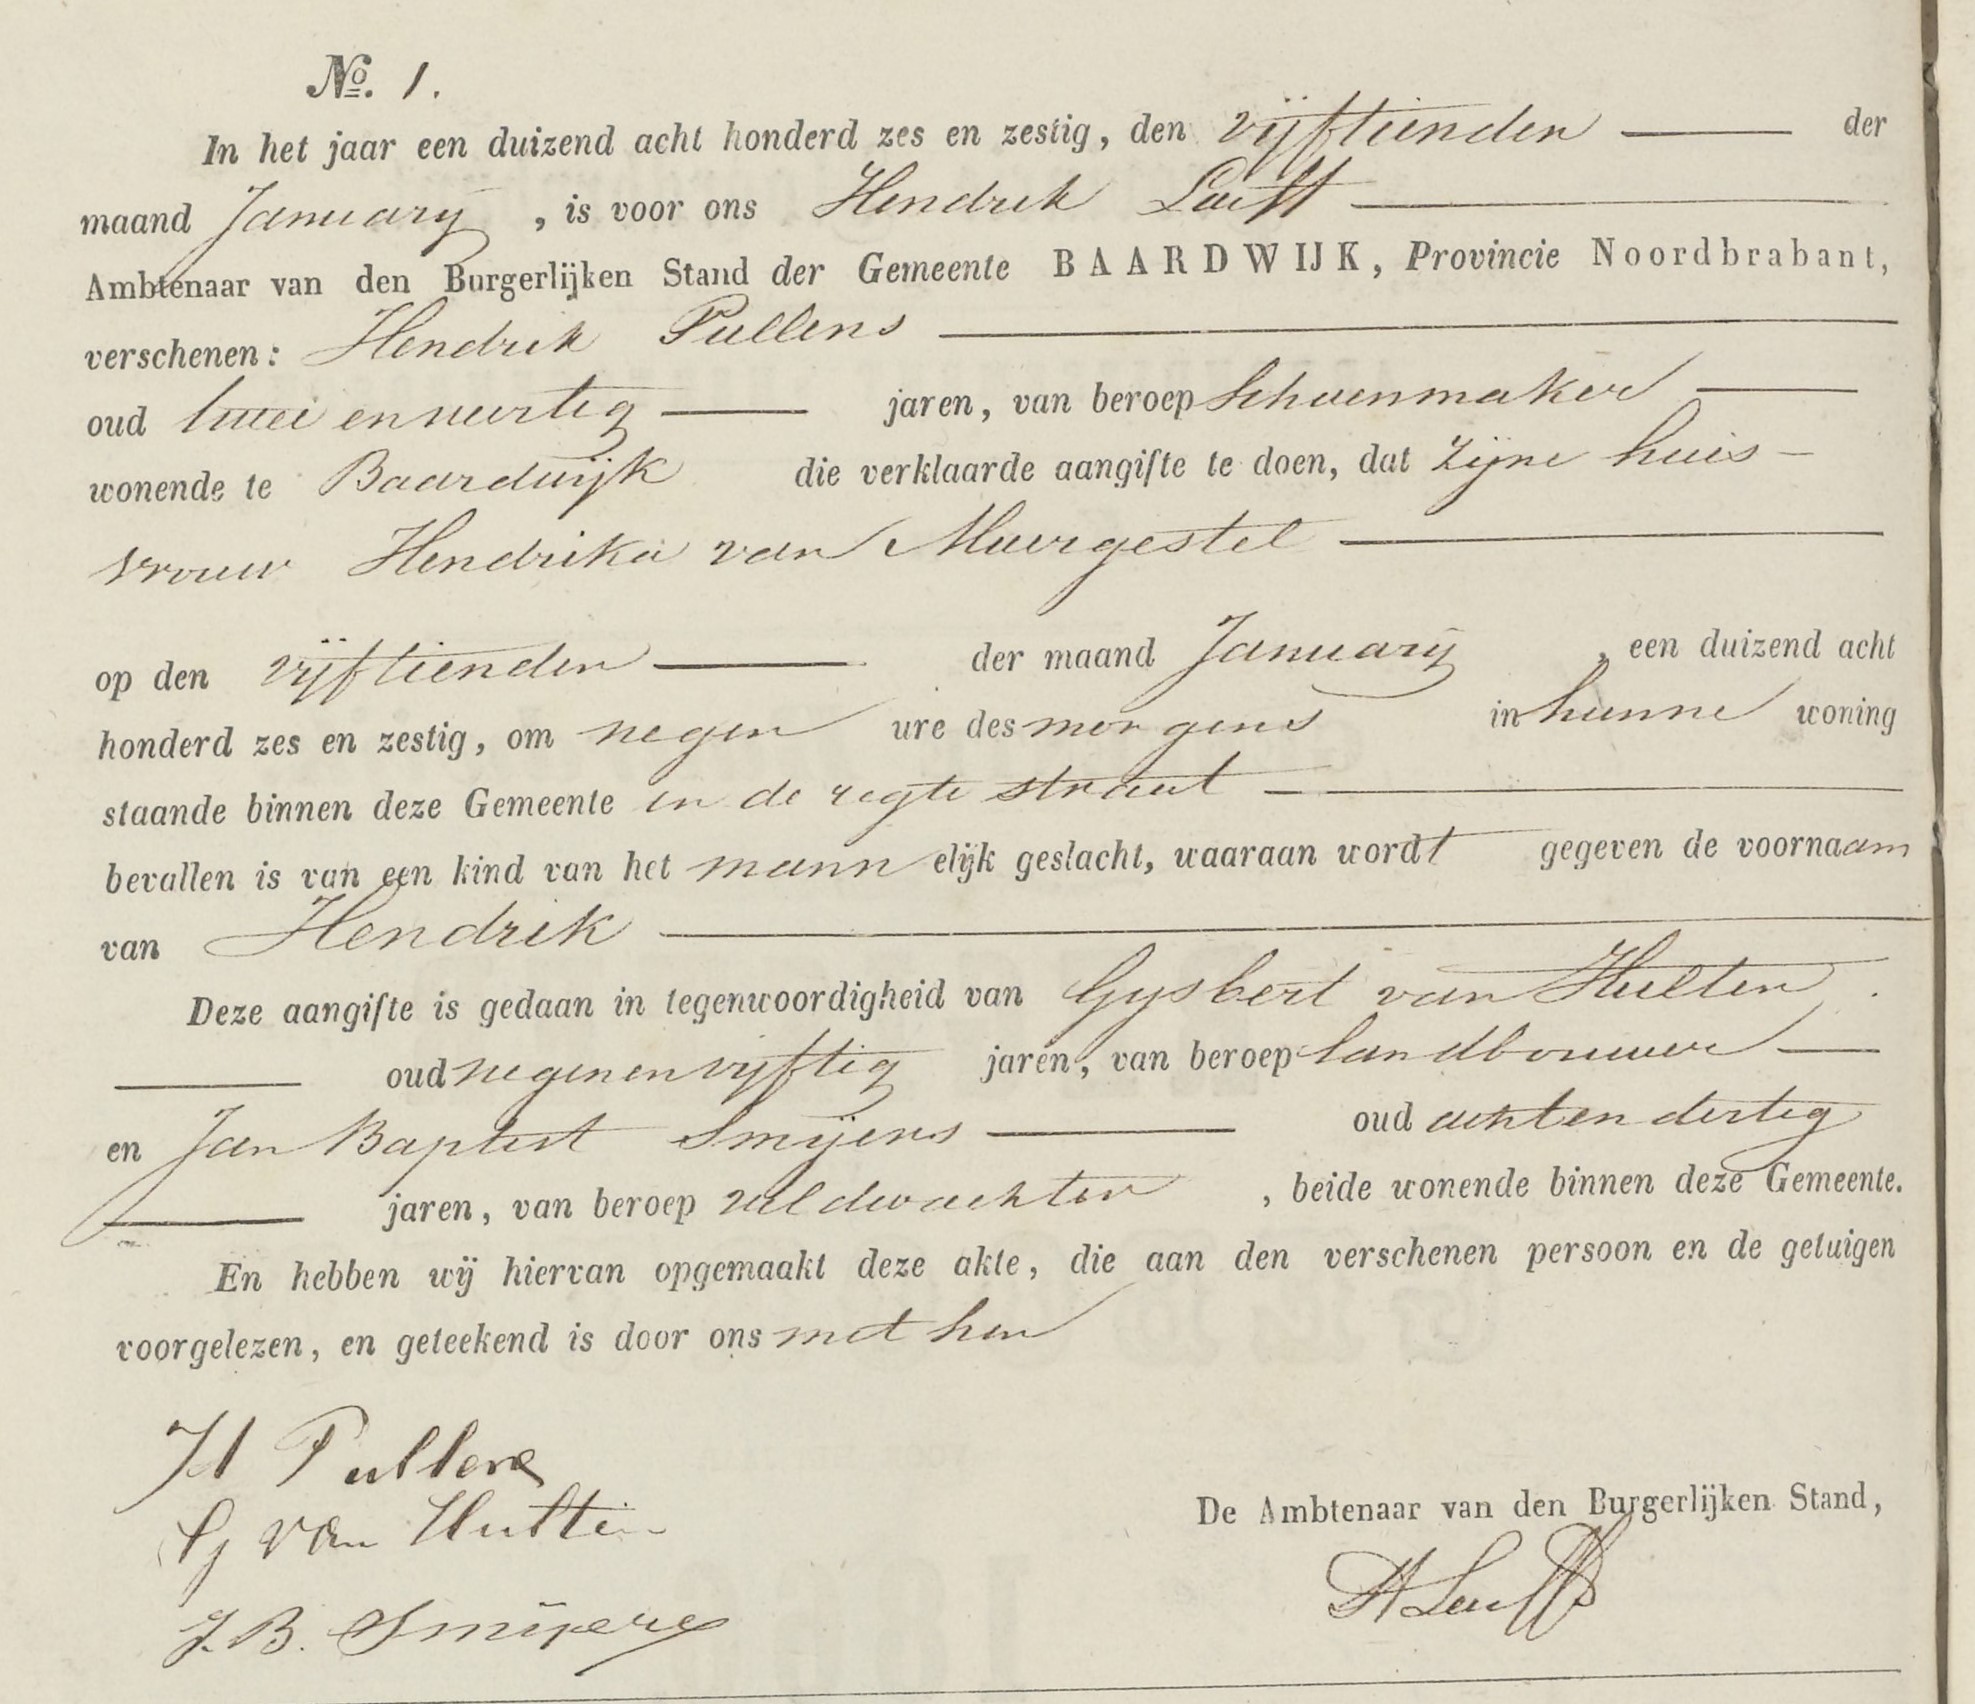 No. 1.
In het jaar een duizend acht honderd zes en zestig, den vijftienden der
maand Januarij, is voor ons Hendrik
Ambtenaar van den Burgerlijken Stand der Gemeente BAARDWIJK, Provincie Noordbrabant,
verschenen: Hendrik Pullens
oud twee en veertig jaren, van beroep Schoenmaker
wonende te Baardwijk die verklaarde aangifte te doen, dat zijne huis-
vrouw Hendrika van Moergestel
op den vijftienden der maand Januarij, een duizend acht
honderd zes en zestig, om negen ure des morgens in hunne woning
staande binnen deze Gemeente in de regte straat
bevallen is van een kind van het mannelijk geslacht, waaraan wordt gegeven de voornaam
van Hendrik
Deze aangifte is gedaan in tegenwoordigheid van Gysbert van Hulten
oud negenenvyftig jaren, van beroep landbouwer
en Jan Baptist Smijers oud achtendertig
jaren, van beroep veldwachter, beide wonende binnen deze Gemeente.
En hebben wij hiervan opgemaakt deze akte, die aan den verschenen persoon en de getuigen
voorgelezen, en geteekend is door ons met hen
H Pullens
G van Hulten
De Ambtenaar van den Burgerlijken Stand,
J. B. Smijers